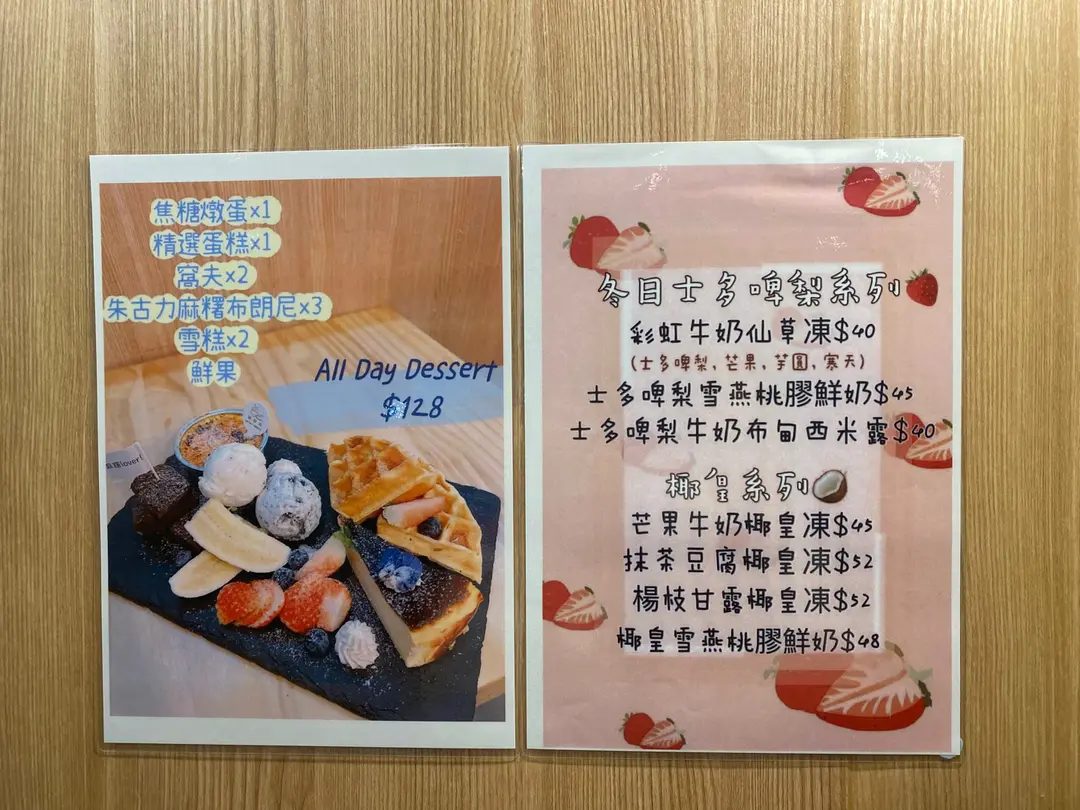 焦糖燉蛋x1
精選蛋糕x1
窩夫x2
朱古力麻糬布朗尼x3
雪糕x2
鮮果
All Day Dessert
$128
lover!
冬日士多啤梨系列
彩虹牛奶仙草凍$40
(士多啤梨,芒果,芋圓,寒天)
士多啤梨雪燕桃膠鮮奶$45
士多啤梨牛奶布甸西米露$40
椰皇系列
芒果牛奶椰皇凍$45
抹茶豆腐椰皇凍$52
楊枝甘露椰皇凍$52
椰皇雪燕桃膠鮮奶$48